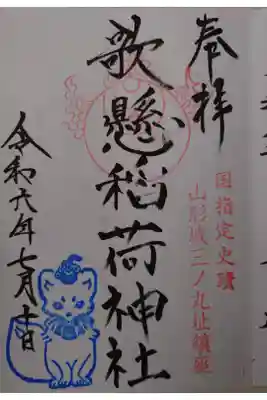 奉拝
国指定史蹟
山形城三ノ丸址鎮座
歌懸稲荷神社
令和六年七月十日